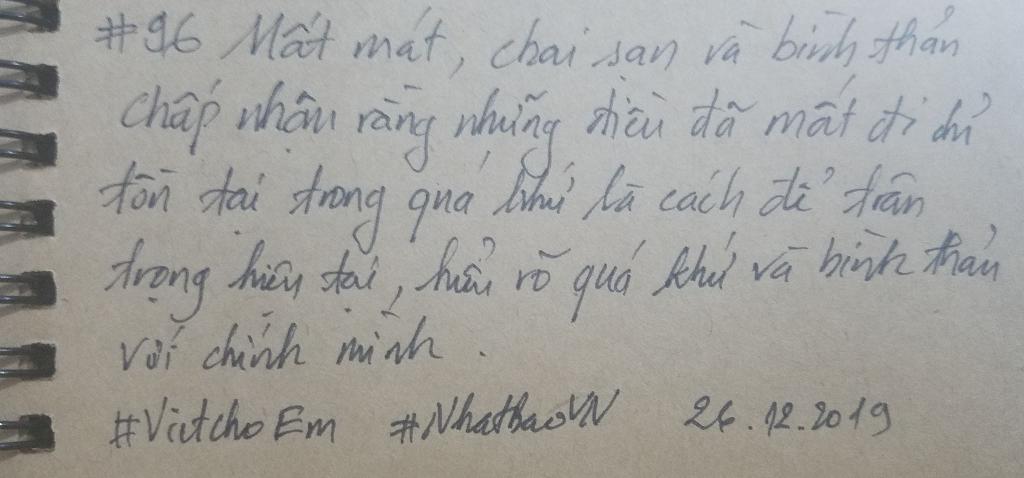 #96 Mất mát, chai sạn và bình thản
Chấp nhận rằng những điều đã mất đi chỉ
tồn tại trong quá khứ là cách để trân
trọng hiện tại, hiểu rõ quá khứ và bình thản
với chính mình.
#VietchoEm #NhatbaoVN 26.12.2019